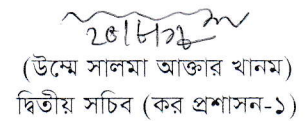 (উম্মে সালমা আক্তার খানম)
দ্বিতীয় সচিব (কর প্রশাসন-১)